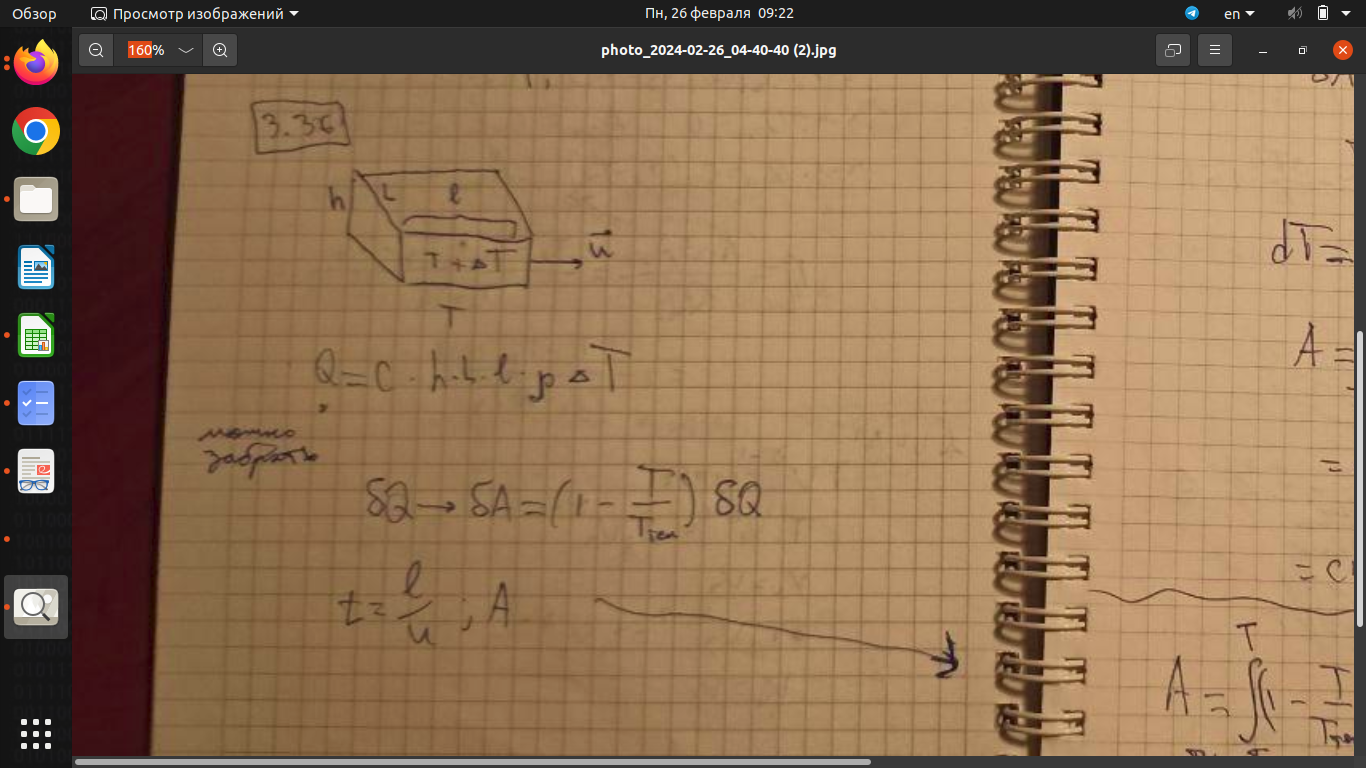 Обзор
Просмотр изображений
Пн, 26 февраля 09:22
en
160%
photo_2024-02-26_04-40-40 (2).jpg
3.36
h L l
T + ΔT
u⃗
T
Q = c · h · L · l · ρ ΔT
можно
забрать
δQ → δA = (1 - T/Tтел) δQ
t = l/u ; A
dT =
A =
=
= c
T
A = ∫(1 - T